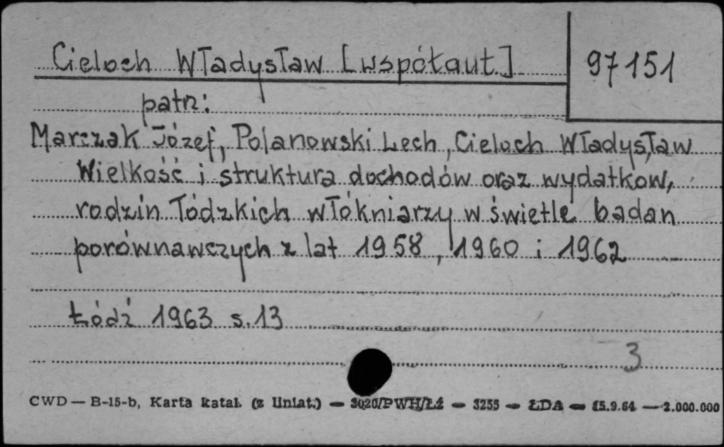 Cieloch Władysław [współaut.]
97151
patrz:
Marczak Józef, Polanowski Lech, Cieloch Władysław
Wielkość i struktura dochodów oraz wydatkow,
rodzin łódzkich włókniarzy w świetle badan
porównawczych z lat 1958, 1960 i 1962
Łódź 1963 s. 13
3
CWD — B-15-b, Karta katal. (z liniat.) — 3020/PWH/Łż — 3255 — ŁDA — 15.9.64 — 2.000.000